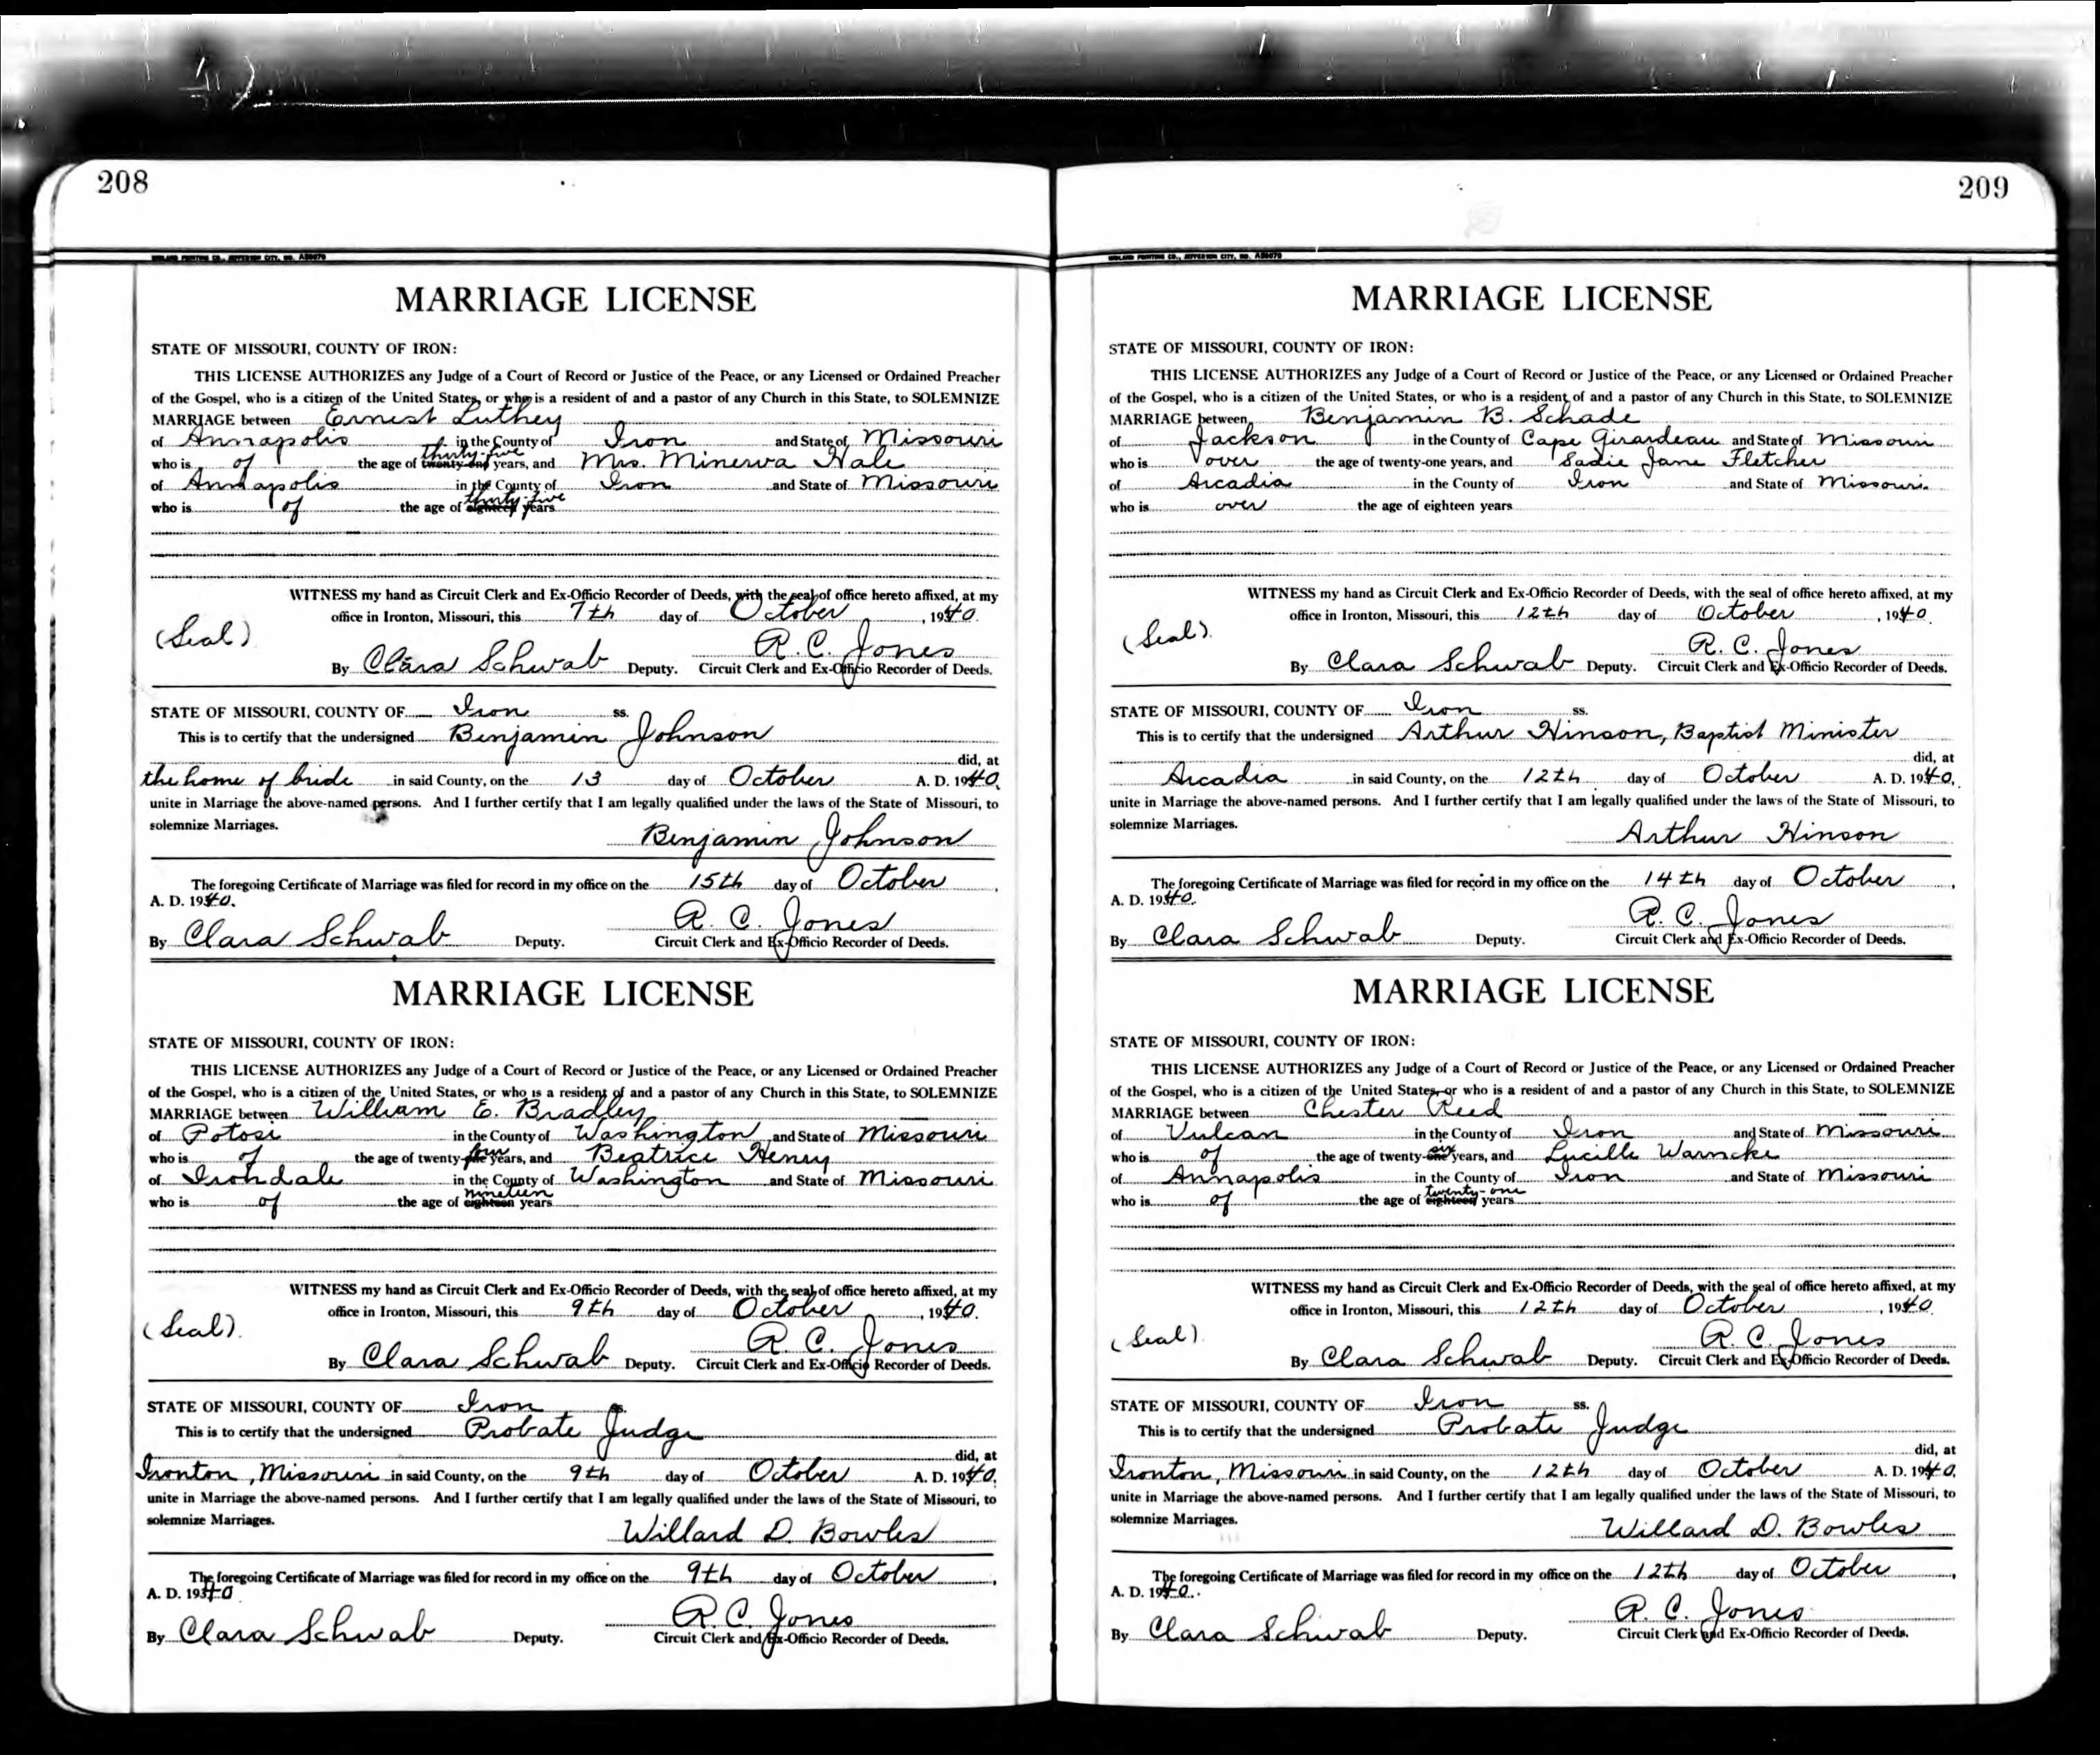 208
MIDLAND PRINTING CO., JEFFERSON CITY, MO. A38670
MARRIAGE LICENSE
STATE OF MISSOURI, COUNTY OF IRON:
THIS LICENSE AUTHORIZES any Judge of a Court of Record or Justice of the Peace, or any Licensed or Ordained Preacher
of the Gospel, who is a citizen of the United States, or who is a resident of and a pastor of any Church in this State, to SOLEMNIZE
MARRIAGE between Ernest Luthey
of Annapolis in the County of Iron and State of Missouri
who is of the age of thirty-five twenty-one years, and Mrs. Minerva Hale
of Annapolis in the County of Iron and State of Missouri
who is of the age of thirty-five eighteen years
WITNESS my hand as Circuit Clerk and Ex-Officio Recorder of Deeds, with the seal of office hereto affixed, at my
office in Ironton, Missouri, this 7th day of October, 1940.
(Seal) R. C. Jones
By Clara Schwab Deputy. Circuit Clerk and Ex-Officio Recorder of Deeds.
STATE OF MISSOURI, COUNTY OF Iron ss.
This is to certify that the undersigned Benjamin Johnson
did, at
the home of bride in said County, on the 13 day of October A. D. 1940.
unite in Marriage the above-named persons. And I further certify that I am legally qualified under the laws of the State of Missouri, to
solemnize Marriages.
Benjamin Johnson
The foregoing Certificate of Marriage was filed for record in my office on the 15th day of October,
A. D. 1940.
R. C. Jones
By Clara Schwab Deputy. Circuit Clerk and Ex-Officio Recorder of Deeds.
MARRIAGE LICENSE
STATE OF MISSOURI, COUNTY OF IRON:
THIS LICENSE AUTHORIZES any Judge of a Court of Record or Justice of the Peace, or any Licensed or Ordained Preacher
of the Gospel, who is a citizen of the United States, or who is a resident of and a pastor of any Church in this State, to SOLEMNIZE
MARRIAGE between William E. Bradley
of Potosi in the County of Washington and State of Missouri
who is of the age of twenty-four years, and Beatrice Henry
of Irondale in the County of Washington and State of Missouri
who is of the age of nineteen eighteen years
WITNESS my hand as Circuit Clerk and Ex-Officio Recorder of Deeds, with the seal of office hereto affixed, at my
office in Ironton, Missouri, this 9th day of October, 1940.
(Seal) R. C. Jones
By Clara Schwab Deputy. Circuit Clerk and Ex-Officio Recorder of Deeds.
STATE OF MISSOURI, COUNTY OF Iron ss.
This is to certify that the undersigned Probate Judge
did, at
Ironton, Missouri in said County, on the 9th day of October A. D. 1940.
unite in Marriage the above-named persons. And I further certify that I am legally qualified under the laws of the State of Missouri, to
solemnize Marriages.
Willard D. Bowles
The foregoing Certificate of Marriage was filed for record in my office on the 9th day of October,
A. D. 1940
R. C. Jones
By Clara Schwab Deputy. Circuit Clerk and Ex-Officio Recorder of Deeds.
209
MIDLAND PRINTING CO., JEFFERSON CITY, MO. A38670
MARRIAGE LICENSE
STATE OF MISSOURI, COUNTY OF IRON:
THIS LICENSE AUTHORIZES any Judge of a Court of Record or Justice of the Peace, or any Licensed or Ordained Preacher
of the Gospel, who is a citizen of the United States, or who is a resident of and a pastor of any Church in this State, to SOLEMNIZE
MARRIAGE between Benjamin B. Schade
of Jackson in the County of Cape Girardeau and State of Missouri
who is over the age of twenty-one years, and Sadie Jane Fletcher
of Arcadia in the County of Iron and State of Missouri.
who is over the age of eighteen years
WITNESS my hand as Circuit Clerk and Ex-Officio Recorder of Deeds, with the seal of office hereto affixed, at my
office in Ironton, Missouri, this 12th day of October, 1940.
(Seal) R. C. Jones
By Clara Schwab Deputy. Circuit Clerk and Ex-Officio Recorder of Deeds.
STATE OF MISSOURI, COUNTY OF Iron ss.
This is to certify that the undersigned Arthur Hinson, Baptist Minister
did, at
Arcadia in said County, on the 12th day of October A. D. 1940.
unite in Marriage the above-named persons. And I further certify that I am legally qualified under the laws of the State of Missouri, to
solemnize Marriages.
Arthur Hinson
The foregoing Certificate of Marriage was filed for record in my office on the 14th day of October,
A. D. 1940.
R. C. Jones
By Clara Schwab Deputy. Circuit Clerk and Ex-Officio Recorder of Deeds.
MARRIAGE LICENSE
STATE OF MISSOURI, COUNTY OF IRON:
THIS LICENSE AUTHORIZES any Judge of a Court of Record or Justice of the Peace, or any Licensed or Ordained Preacher
of the Gospel, who is a citizen of the United States, or who is a resident of and a pastor of any Church in this State, to SOLEMNIZE
MARRIAGE between Chester Reed
of Vulcan in the County of Iron and State of Missouri
who is of the age of twenty-six years, and Lucille Warncke
of Annapolis in the County of Iron and State of Missouri
who is of the age of twenty-one eighteen years
WITNESS my hand as Circuit Clerk and Ex-Officio Recorder of Deeds, with the seal of office hereto affixed, at my
office in Ironton, Missouri, this 12th day of October, 1940.
(Seal) R. C. Jones
By Clara Schwab Deputy. Circuit Clerk and Ex-Officio Recorder of Deeds.
STATE OF MISSOURI, COUNTY OF Iron ss.
This is to certify that the undersigned Probate Judge
did, at
Ironton, Missouri in said County, on the 12th day of October A. D. 1940.
unite in Marriage the above-named persons. And I further certify that I am legally qualified under the laws of the State of Missouri, to
solemnize Marriages.
Willard D. Bowles
The foregoing Certificate of Marriage was filed for record in my office on the 12th day of October,
A. D. 1940.
R. C. Jones
By Clara Schwab Deputy. Circuit Clerk and Ex-Officio Recorder of Deeds.